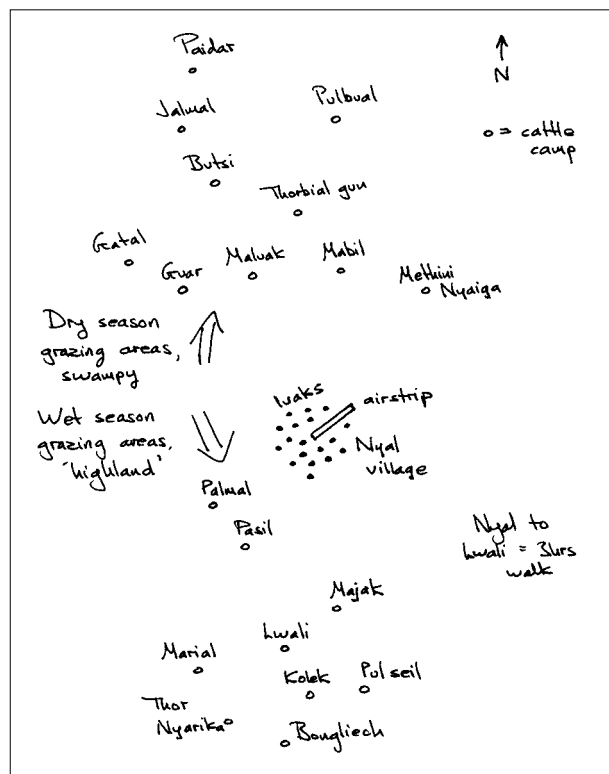 Paidar
N
Jalmal
Pulbual
o = cattle
camp
Butsi
Thorbial gun
Gatal
Guar
Maluak
Mabil
Methini
Nyaiga
Dry season
grazing areas,
swampy
luaks
airstrip
Wet season
grazing areas,
'highland'
Nyal
village
Palmal
Pasil
Nyal to
Lwali = 3hrs
walk
Majak
Lwali
Marial
Kolek
Pul seil
Thor
Nyarika
Bongliech